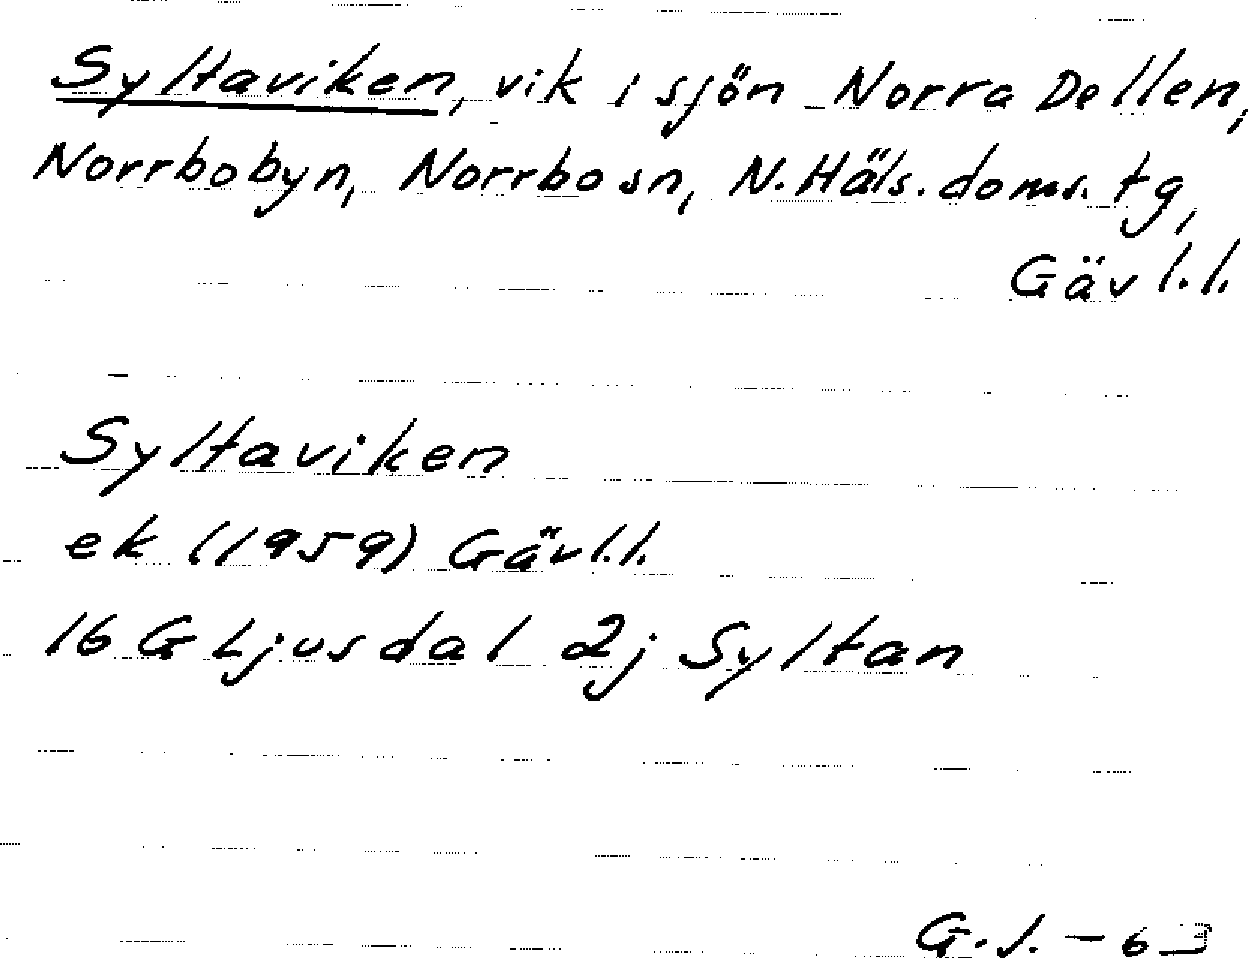 Syltaviken, vik i sjön Norra Dellen,
Norrbobyn, Norrbo sn, N. Häls. doms. tg,
Gävl. l.
Syltaviken
ek (1959) Gävl. l.
16 G Ljusdal 2j Syltan
G. J. - 63